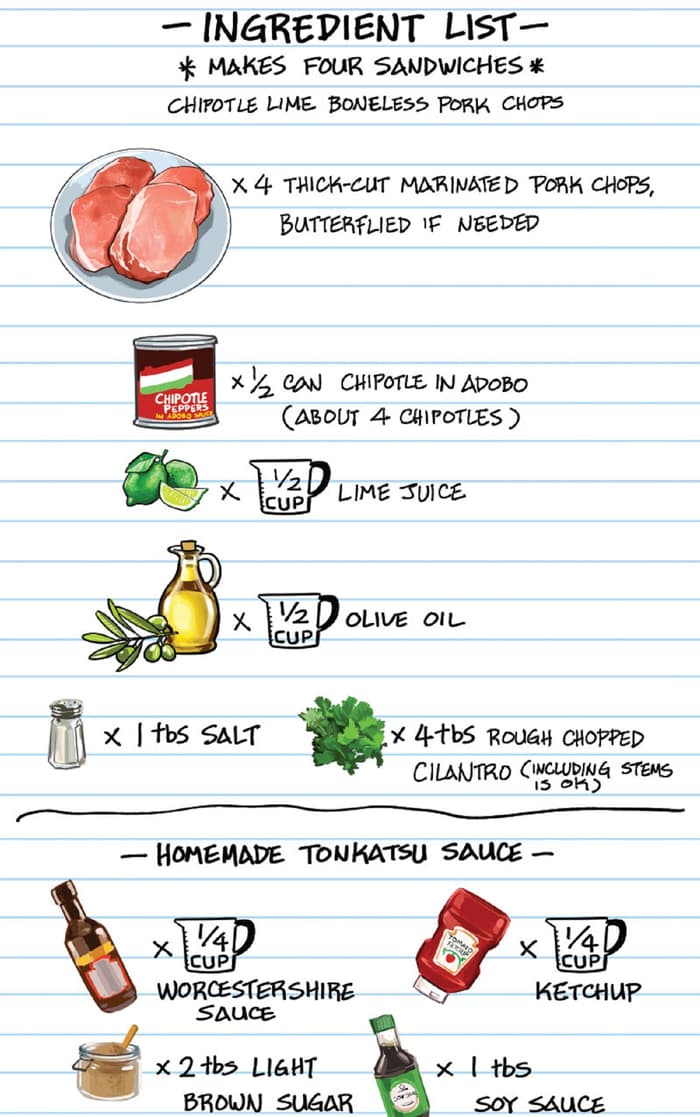 — INGREDIENT LIST —
* MAKES FOUR SANDWICHES *
CHIPOTLE LIME BONELESS PORK CHOPS
x 4 THICK-CUT MARINATED PORK CHOPS,
BUTTERFLIED IF NEEDED
CHIPOTLE
PEPPERS
IN ADOBO SAUCE
x 1/2 CAN CHIPOTLE IN ADOBO
(ABOUT 4 CHIPOTLES)
x 1/2 CUP LIME JUICE
x 1/2 CUP OLIVE OIL
x 1 tbs SALT
x 4 tbs ROUGH CHOPPED
CILANTRO (INCLUDING STEMS
IS OK)
— HOMEMADE TONKATSU SAUCE —
x 1/4 CUP
WORCESTERSHIRE
SAUCE
TOMATO
KETCHUP
x 1/4 CUP
KETCHUP
x 2 tbs LIGHT
BROWN SUGAR
x 1 tbs
SOY SAUCE